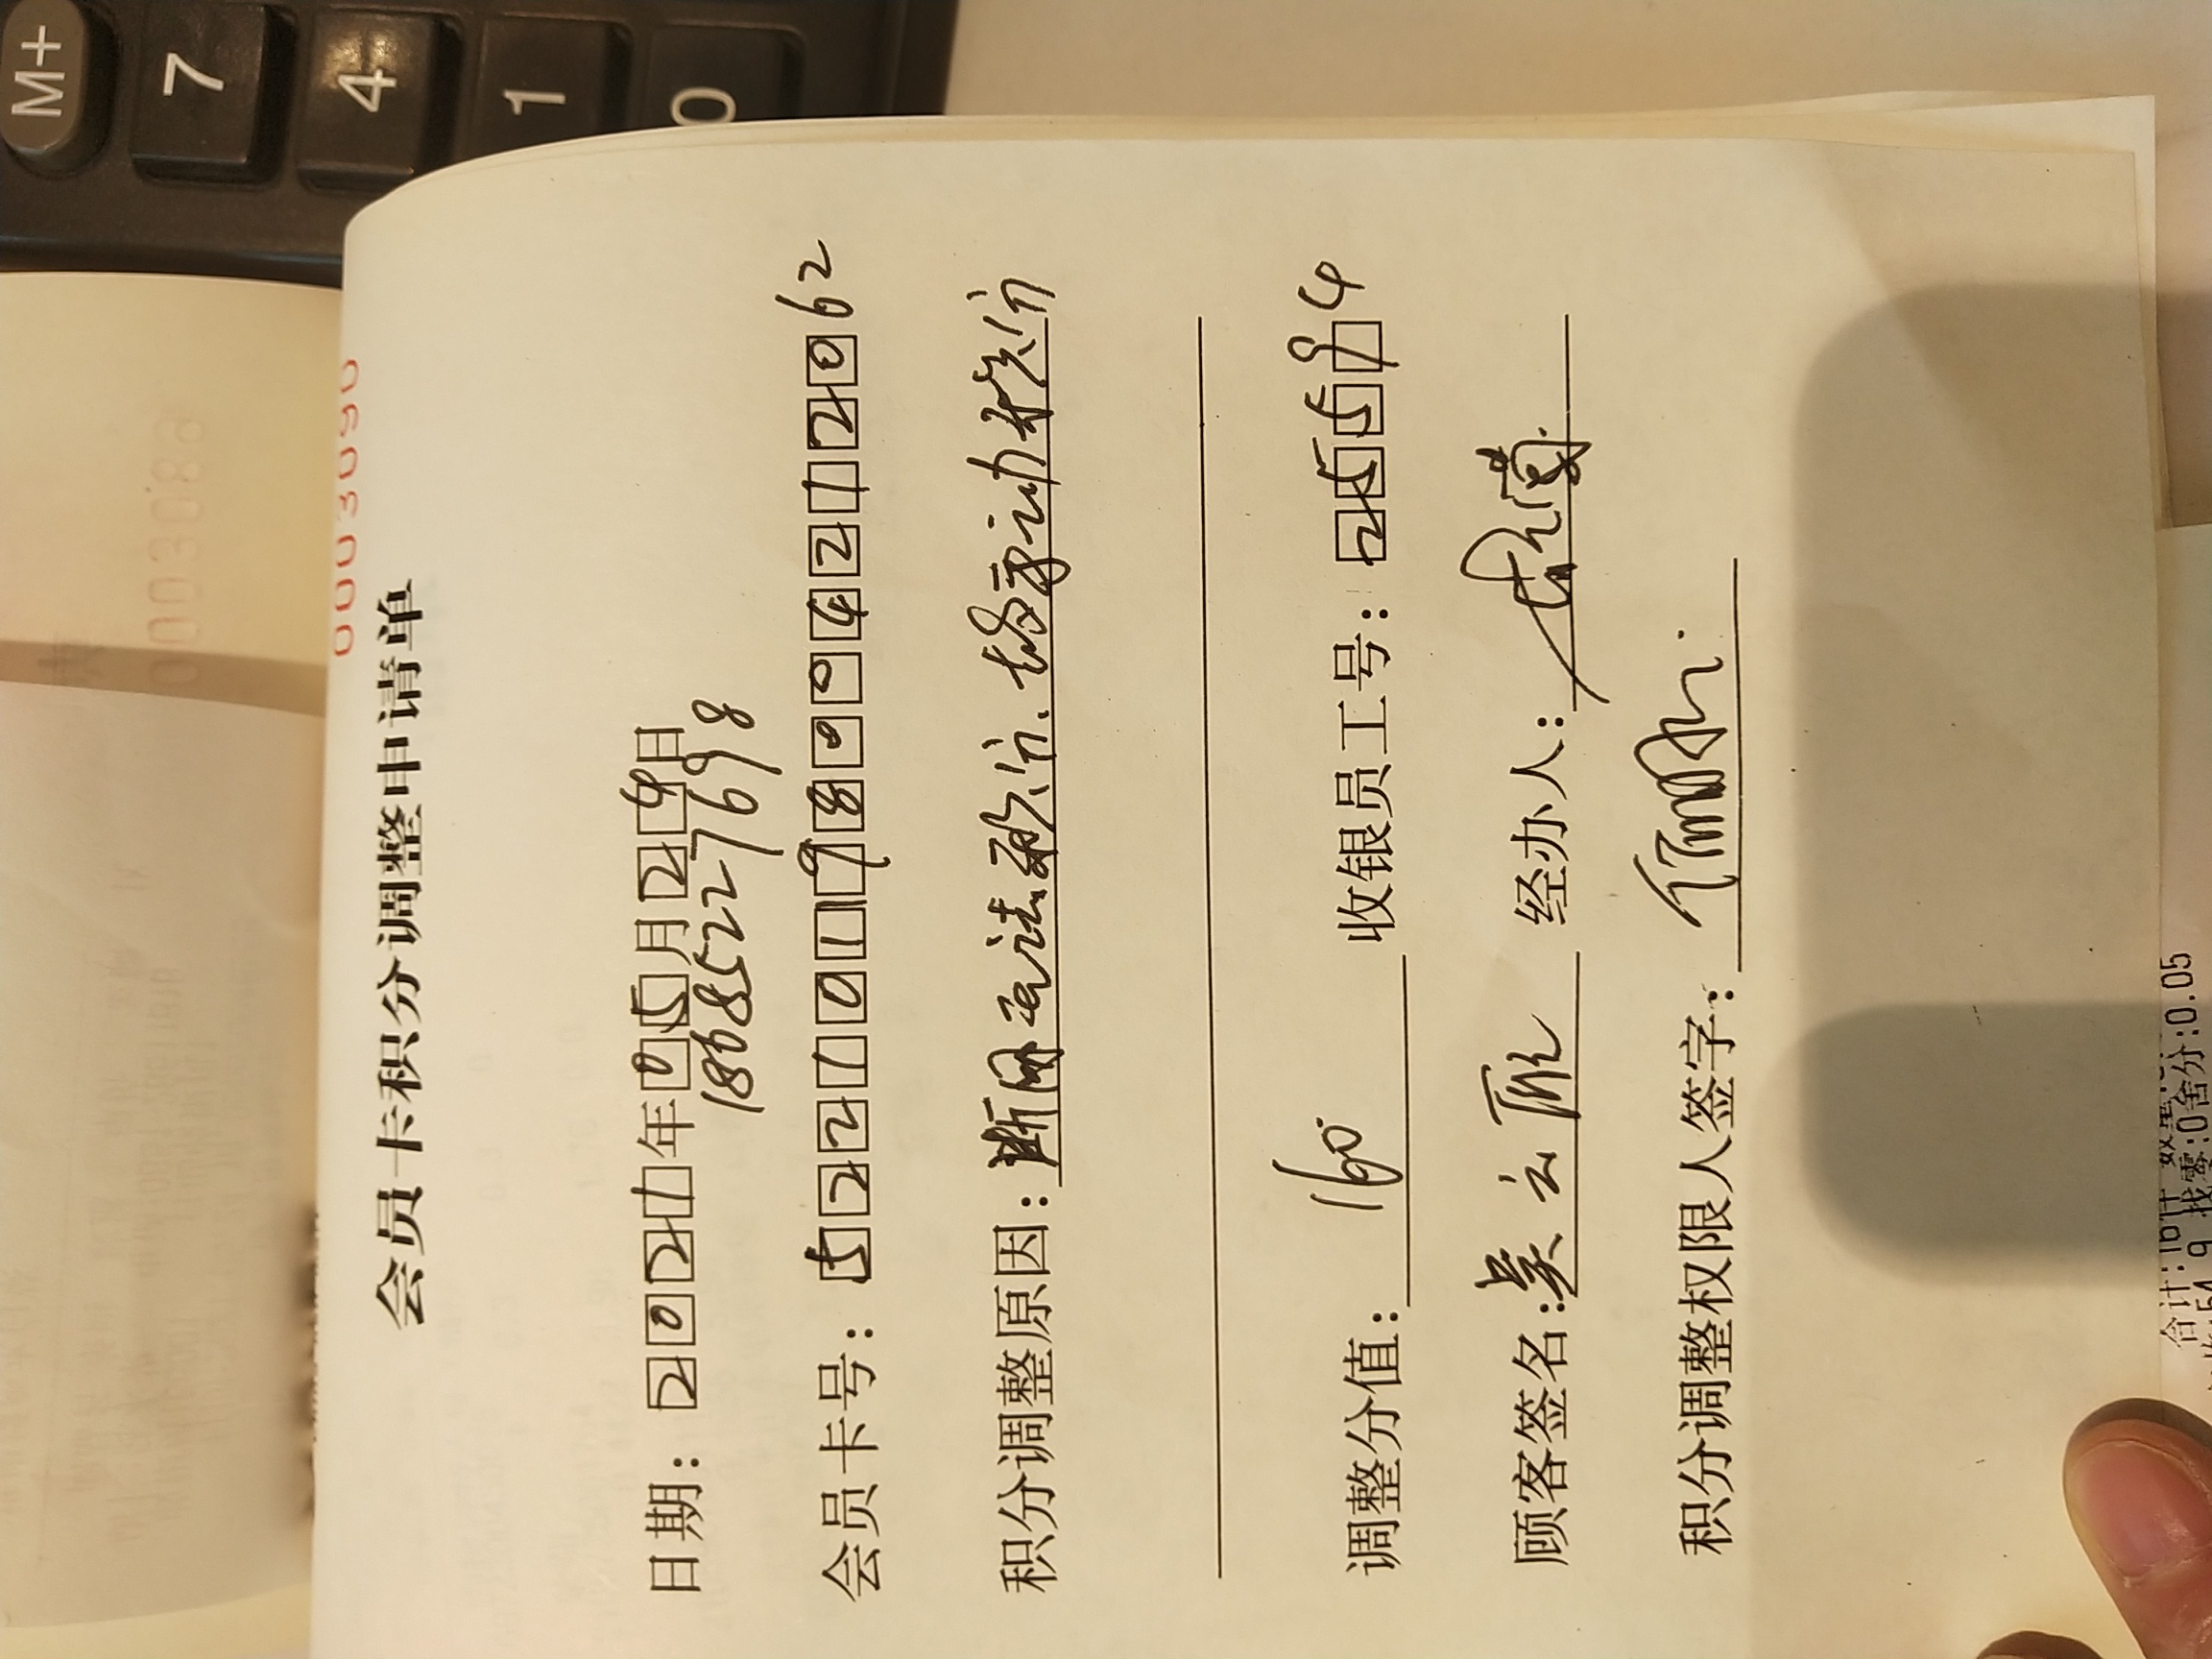 M+
7
4
1
0
0003089
0003090
会员卡积分调整申请单
日期：2021年05月29日
18685227698
会员卡号：522101198004212062
积分调整原因：断网无法积分，
手动积分
调整分值：160 收银员工号：255594
顾客签名：吴云 经办人：
积分调整权限人签字：
合计:
找零:0舍分:0.05